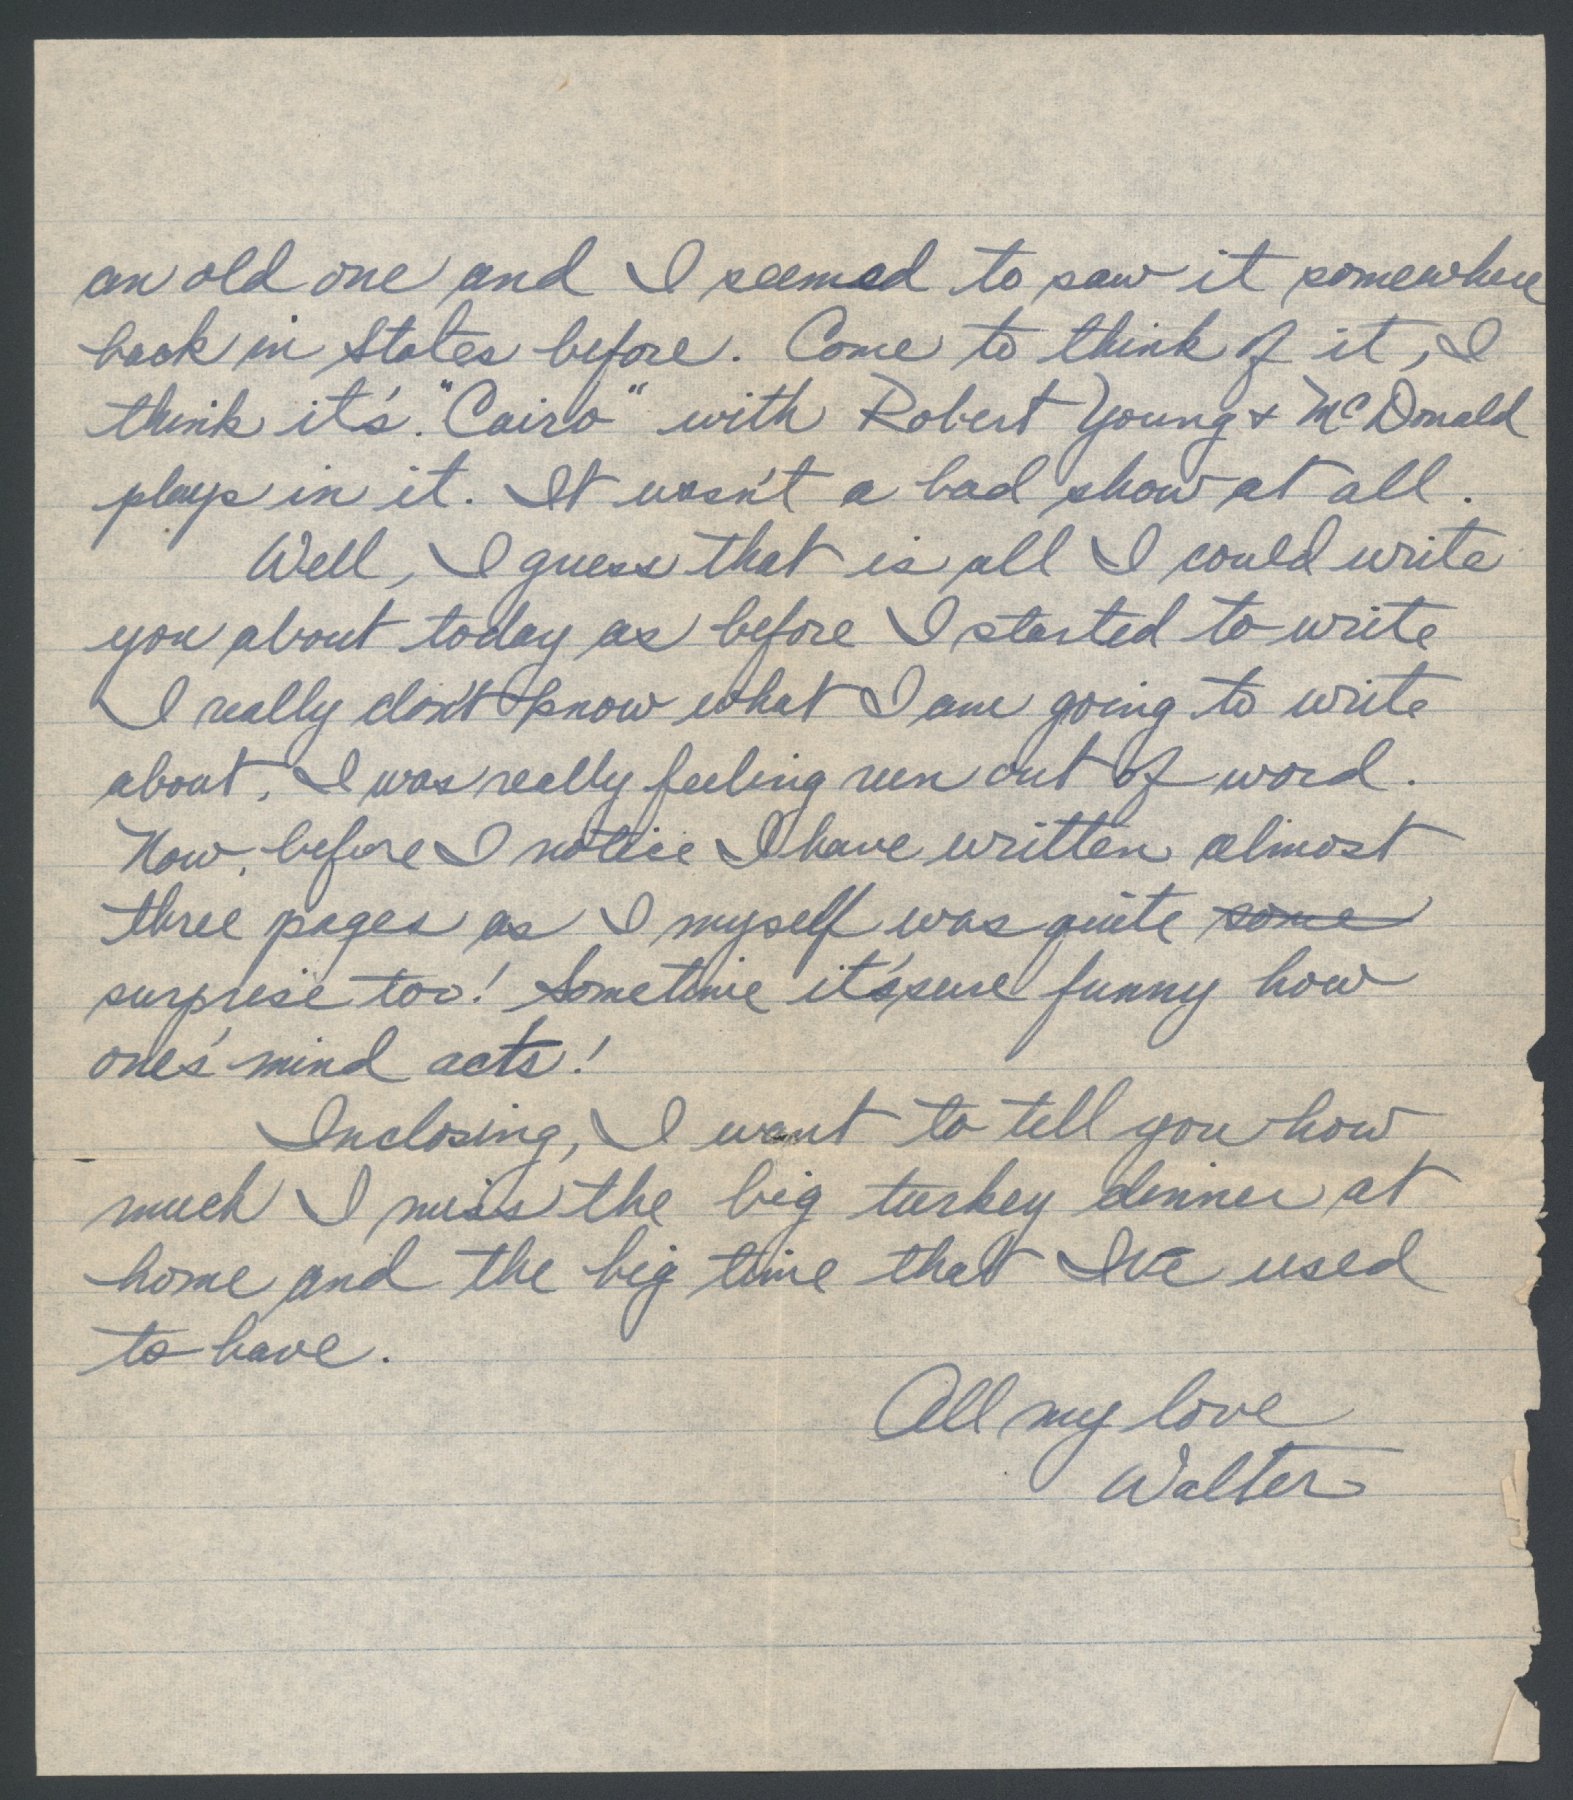 an old one and I seemed to saw it somewhere
back in States before. Come to think of it, I
think it's. "Cairo" with Robert Young & McDonald
plays in it. It wasn't a bad show at all.
Well, I guess that is all I could write
you about today as before I started to write
I really don't know what I am going to write
about. I was really feeling run out of word.
Now, before I notice I have written almost
three pages as I myself was quite some
surprise too! Sometime it's sure funny how
one's mind acts!
Inclosing, I want to tell you how
much I miss the big turkey dinner at
home and the big time that I've used
to have.
All my love
Walter